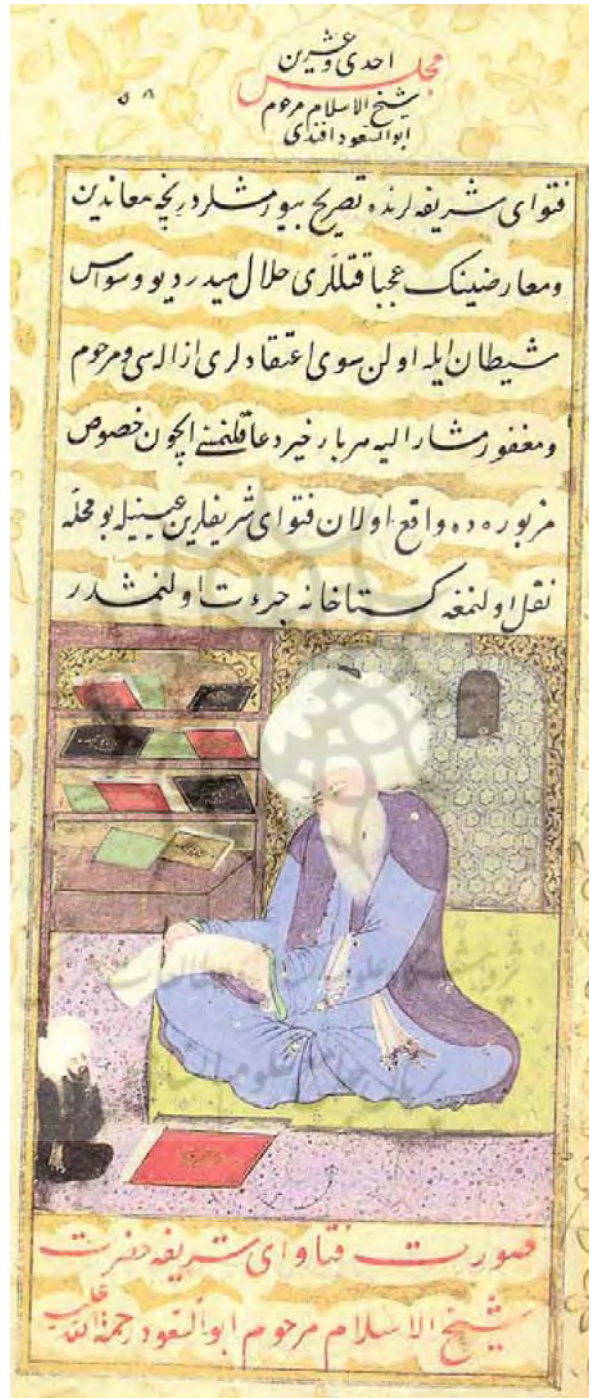 احدی و عشرین
مجلس
شیخ الاسلام مرحوم
ابوالسعود افندی
۵۸
فتوای شریفه لرنده تصریح بیورمشلردر نیجه معاندین
ومعارضینك عجبا قتللری حلال میدر دیو وسواس
شیطان ایله اولن سوی اعتقادلری ازاله سی ومرحوم
ومغفور مشار الیه هر بار خیر دعا قلنمسی ایچون خصوص
مزبوره ده واقع اولان فتوای شریفلرین عینیله بو محله
نقل اولنمغه کستاخانه جرءت اولنمشدر
صورت فتاوای شریفه حضرت
شیخ الاسلام مرحوم ابوالسعود رحمة الله علیه